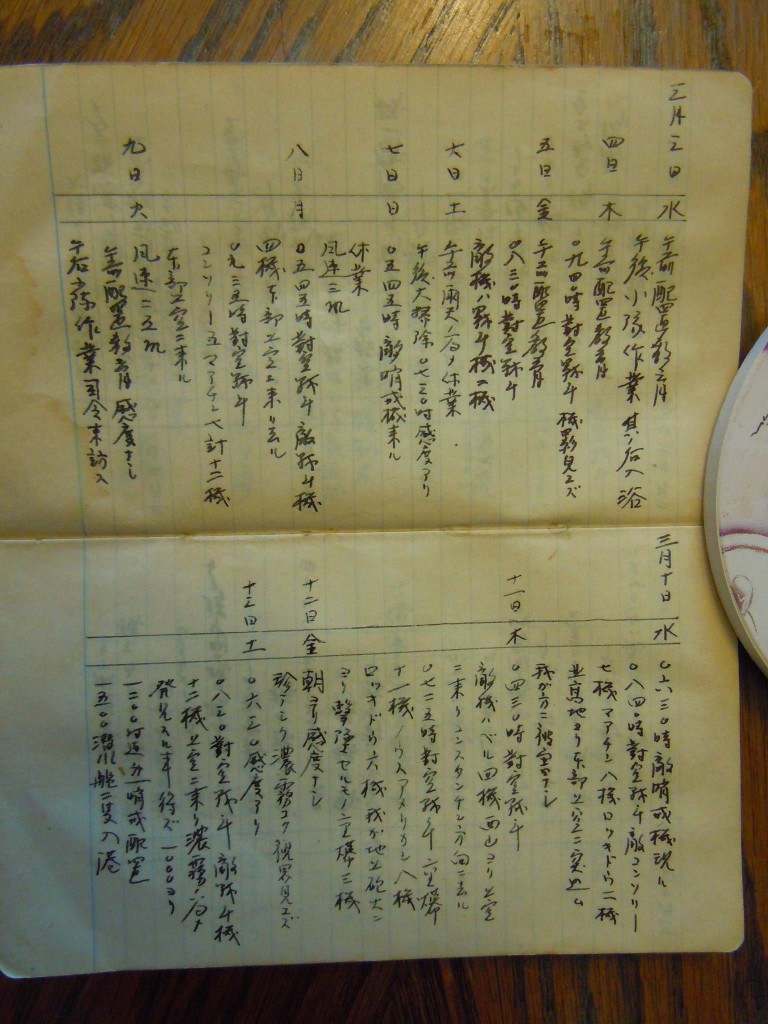 三月三日 水 午前配置教育
午後小隊作業 其ノ后入浴
四日 木 午前配置教育
〇九四〇時對空戦斗 機影見エズ
五日 金 午前配置教育
〇八三〇時對空戦斗
敵機ハ戦斗機二機
六日 土 午前雨天ノ為メ休業
午後大掃除 〇七三〇時感度アリ
七日 日 〇五四五時敵哨戒機来ル
休業
風速三m
八日 月 〇五四五時對空戦斗 敵戦斗機
四機東部上空ニ来リ去ル
〇九三五時對空戦斗
コンソリー五マアチン七計十二機
東部上空ニ来ル
九日 火 風速二五m
午前配置教育 感度ナシ
午后小隊作業 司令来訪ス
三月十日 水 〇六三〇時敵哨戒機現ル
〇八四〇時對空戦斗 敵コンソリー
七機マアチン八機ロッキード二機
高地ヨリ東部上空ニ突込ム
我ガ方ニ被害ナシ
十一日 木 〇四三〇時對空戦斗
敵機ハベル四機西山ヨリ上空
ニ来リコンスタンチン方向ニ去ル
〇七二五時對空戦斗 爆
十一機ノウスアメリカン八機
ロッキード六機 我ガ地上砲火ニ
ヨリ撃墜セルモノ 爆三機
十二日 金 朝ヨリ感度ナシ
珍ラシク濃霧ニテ視界見エズ
十三日 土 〇六三〇感度アリ
〇八三〇對空戦斗 敵戦斗機
十二機上空ニ来リ濃霧ノ為メ
発見スル事得ズ 一〇〇〇ヨリ
一二〇〇時迄 哨戒配置
一五〇〇潜水艦二隻入港